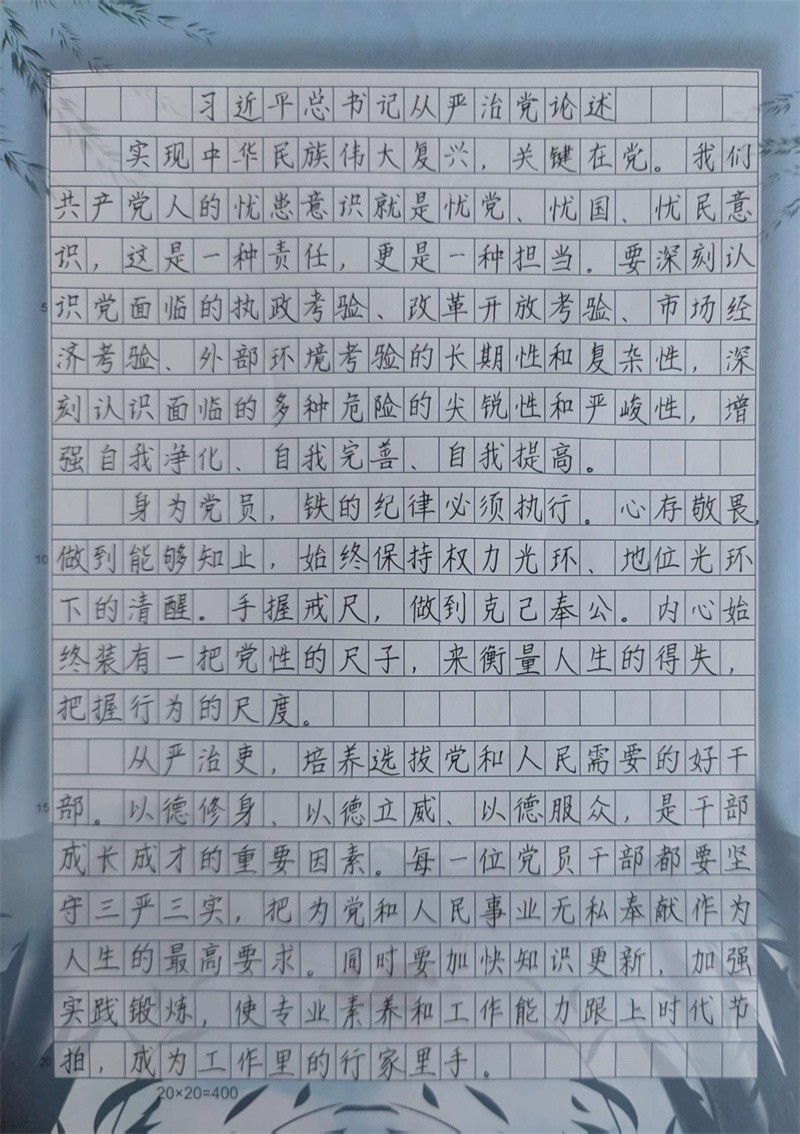 习近平总书记从严治党论述
实现中华民族伟大复兴，关键在党。我们
共产党人的忧患意识就是忧党、忧国、忧民意
识，这是一种责任，更是一种担当。要深刻认
5 识党面临的执政考验、改革开放考验、市场经
济考验、外部环境考验的长期性和复杂性，深
刻认识面临的多种危险的尖锐性和严峻性，增
强自我净化、自我完善、自我提高。
身为党员，铁的纪律必须执行。心存敬畏，
10 做到能够知止，始终保持权力光环、地位光环
下的清醒。手握戒尺，做到克己奉公。内心始
终装有一把党性的尺子，来衡量人生的得失，
把握行为的尺度。
从严治吏，培养选拔党和人民需要的好干
15 部。以德修身、以德立威、以德服众，是干部
成长成才的重要因素。每一位党员干部都要坚
守三严三实，把为党和人民事业无私奉献作为
人生的最高要求。同时要加快知识更新，加强
实践锻炼，使专业素养和工作能力跟上时代节
20 拍，成为工作里的行家里手。
20×20=400